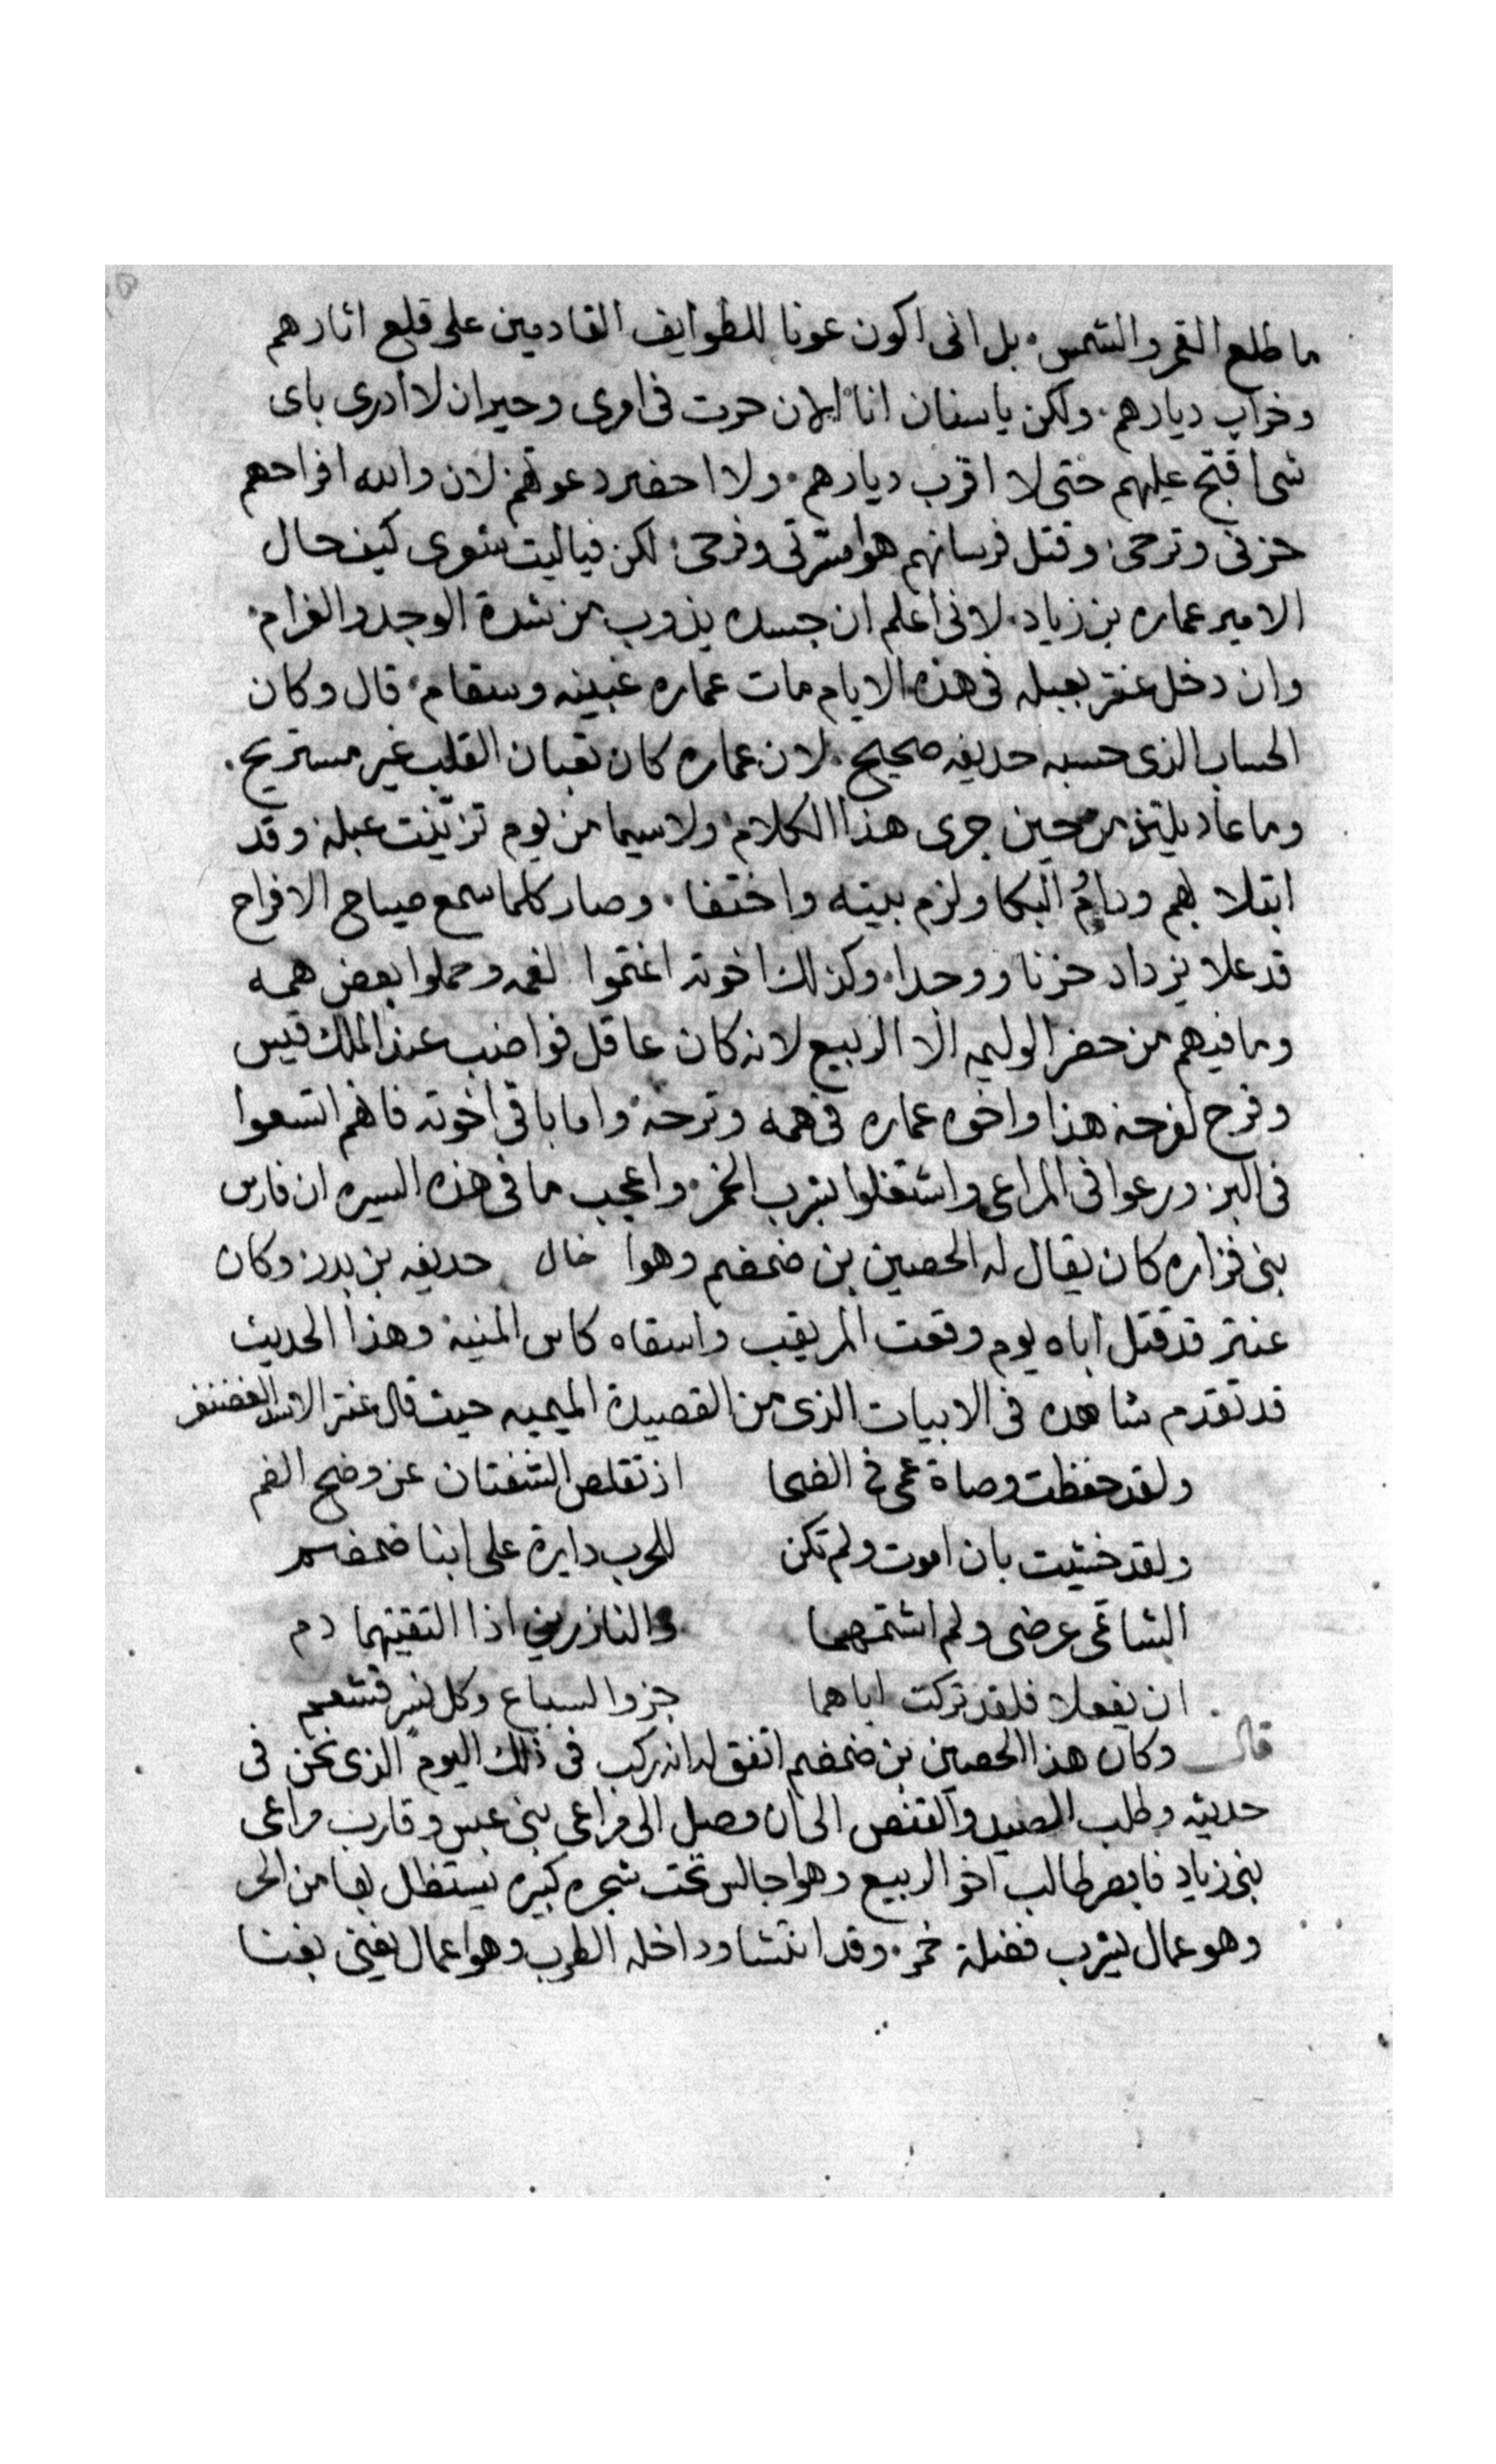 ما طلع القمر والشمس. بل انى اكون عونا للطوايف القادمين على قلع اثارهم
وخراب ديارهم. ولكن ياسنان انا الان حرت فى امرى وحيران لا ادرى باى
شى اقبح عليهم حتى لا اقرب ديارهم. ولا احضر دعوتهم لان والله افراحهم
حزنى وترحى. وقتل فرسانهم هوا مسرتى وفرحى. لكن فياليت شعرى كيف حال
الامير عماره بن زياد. لانى اعلم ان جسده يذوب من شدة الوجد والغرام.
وان دخل عنتر بعبله فى هذه الايام مات عماره غبينه وسقام. قال وكان
الحساب الذى حسبه حديفه صحيح. لان عماره كان تعبان القلب غير مستريح.
وما عاد يلتذ من حين جرى هذا الكلام. ولاسيما من يوم تزينت عبله وقد
ابتلا بهم ودايم البكا ولزم بيته واختفا. وصار كلما سمع صياح الافراح
قد علا يزداد حزنا ووجدا. وكذلك اخوته اغتموا لغمه وحملوا بعض همه
وما فيهم من حضر الوليمه الا الربيع لانه كان عاقل فواضب عند الملك قيس
وفرح لفرحه هذا واخوه عماره فى همه وترحه. واما باقى اخوته فاهم اتسعوا
فى البر. ورعوا فى المراعى واشتغلوا بشرب الخمر. واعجب ما فى هذه السيره ان فارس
بنى فزاره كان يقال له الحصين بن ضمضم وهوا خال حديفه بن بدر وكان
عنتر قد قتل اباه يوم وقعت المريقب واسقاه كاس المنية وهذا الحديث
قد تقدم شاهده فى الابيات الذى من القصيدة الميميه حيث قال عنتر الاسد الغضنفر
ولقد حفظت وصاة عمى فى الضحا اذ تقلص الشفتان عن وضح الفم
ولقد خشيت بان اموت ولم تكن للحرب دايرة على ابنا ضمضم
الشاتمى عرضى ولم اشتمهما والناذرين اذا التقيتهما دم
ان يفعلا فلقد تركت اباهما جزر السباع وكل نسر قشعم
قال وكان هذا الحصين بن ضمضم اتفق له انه ركب فى ذلك اليوم الذى نحن فى
حديثه وطلب الصيد والقنص الى ان وصل الى مراعى بنى عبس وقارب مراعى
بنى زياد فابصر طالب اخو الربيع وهوا جالس تحت شجره كبيره يستظل بها من الحر
وهو عمال يشرب فضلة خمر. وقد انتشا وداخله الطرب وهوا عمال يغنى بغنا